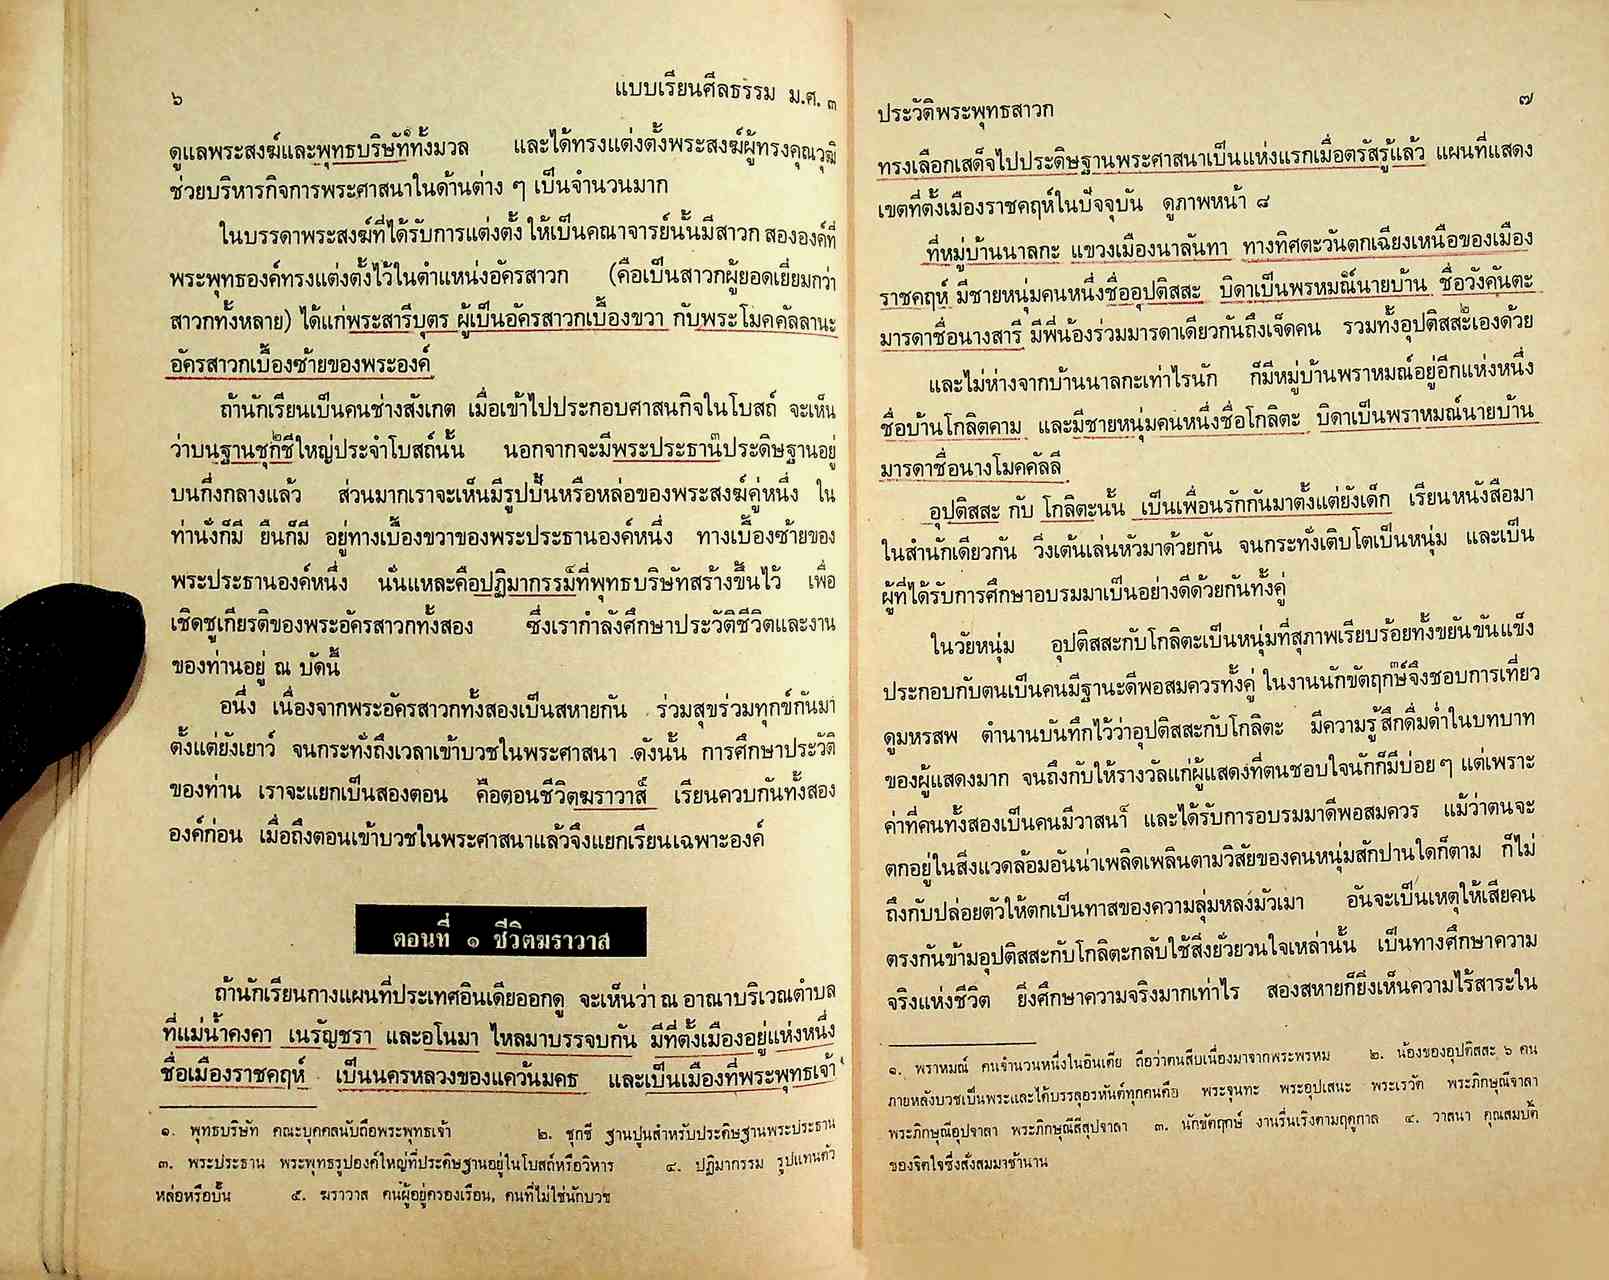 ๖
แบบเรียนศีลธรรม ม.ศ. ๓
ดูแลพระสงฆ์และพุทธบริษัท๑ทั้งมวล และได้ทรงแต่งตั้งพระสงฆ์ผู้ทรงคุณวุฒิ
ช่วยบริหารกิจการพระศาสนาในด้านต่าง ๆ เป็นจำนวนมาก
ในบรรดาพระสงฆ์ที่ได้รับการแต่งตั้ง ให้เป็นคณาจารย์นั้นมีสาวก สององค์ที่
พระพุทธองค์ทรงแต่งตั้งไว้ในตำแหน่งอัครสาวก (คือเป็นสาวกผู้ยอดเยี่ยมกว่า
สาวกทั้งหลาย) ได้แก่พระสารีบุตร ผู้เป็นอัครสาวกเบื้องขวา กับพระโมคคัลลานะ
อัครสาวกเบื้องซ้ายของพระองค์
ถ้านักเรียนเป็นคนช่างสังเกต เมื่อเข้าไปประกอบศาสนกิจในโบสถ์ จะเห็น
ว่าบนฐานชุกชี๒ใหญ่ประจำโบสถ์นั้น นอกจากจะมีพระประธาน๓ประดิษฐานอยู่
บนกึ่งกลางแล้ว ส่วนมากเราจะเห็นมีรูปปั้นหรือหล่อของพระสงฆ์คู่หนึ่ง ใน
ท่านั่งก็มี ยืนก็มี อยู่ทางเบื้องขวาของพระประธานองค์หนึ่ง ทางเบื้องซ้ายของ
พระประธานองค์หนึ่ง นั่นแหละคือปฏิมากรรม๔ที่พุทธบริษัทสร้างขึ้นไว้ เพื่อ
เชิดชูเกียรติของพระอัครสาวกทั้งสอง ซึ่งเรากำลังศึกษาประวัติชีวิตและงาน
ของท่านอยู่ ณ บัดนี้
อนึ่ง เนื่องจากพระอัครสาวกทั้งสองเป็นสหายกัน ร่วมสุขร่วมทุกข์กันมา
ตั้งแต่ยังเยาว์ จนกระทั่งถึงเวลาเข้าบวชในพระศาสนา ดังนั้น การศึกษาประวัติ
ของท่าน เราจะแยกเป็นสองตอน คือตอนชีวิตฆราวาส๕ เรียนควบกันทั้งสอง
องค์ก่อน เมื่อถึงตอนเข้าบวชในพระศาสนาแล้วจึงแยกเรียนเฉพาะองค์
ตอนที่ ๑ ชีวิตฆราวาส
ถ้านักเรียนกางแผนที่ประเทศอินเดียออกดู จะเห็นว่า ณ อาณาบริเวณตำบล
ที่แม่น้ำคงคา เนรัญชรา และอโนมา ไหลมาบรรจบกัน มีที่ตั้งเมืองอยู่แห่งหนึ่ง
ชื่อเมืองราชคฤห์ เป็นนครหลวงของแคว้นมคธ และเป็นเมืองที่พระพุทธเจ้า
๑. พุทธบริษัท คณะบุคคลนับถือพระพุทธเจ้า ๒. ชุกชี ฐานปูนสำหรับประดิษฐานพระประธาน
๓. พระประธาน พระพุทธรูปองค์ใหญ่ที่ประดิษฐานอยู่ในโบสถ์หรือวิหาร ๔. ปฏิมากรรม รูปแทนตัว
หล่อหรือปั้น ๕. ฆราวาส คนผู้อยู่ครองเรือน, คนที่ไม่ใช่นักบวช
ประวัติพระพุทธสาวก
๗
ทรงเลือกเสด็จไปประดิษฐานพระศาสนาเป็นแห่งแรกเมื่อตรัสรู้แล้ว แผนที่แสดง
เขตที่ตั้งเมืองราชคฤห์ในปัจจุบัน ดูภาพหน้า ๘
ที่หมู่บ้านนาลกะ แขวงเมืองนาลันทา ทางทิศตะวันตกเฉียงเหนือของเมือง
ราชคฤห์ มีชายหนุ่มคนหนึ่งชื่ออุปติสสะ บิดาเป็นพรหมณ์๑นายบ้าน ชื่อวังคันตะ
มารดาชื่อนางสารี มีพี่น้องร่วมมารดาเดียวกันถึงเจ็ดคน รวมทั้งอุปติสสะ๒เองด้วย
และไม่ห่างจากบ้านนาลกะเท่าไรนัก ก็มีหมู่บ้านพราหมณ์อยู่อีกแห่งหนึ่ง
ชื่อบ้านโกลิตคาม และมีชายหนุ่มคนหนึ่งชื่อโกลิตะ บิดาเป็นพราหมณ์นายบ้าน
มารดาชื่อนางโมคคัลลี
อุปติสสะ กับ โกลิตะนั้น เป็นเพื่อนรักกันมาตั้งแต่ยังเด็ก เรียนหนังสือมา
ในสำนักเดียวกัน วิ่งเต้นเล่นหัวมาด้วยกัน จนกระทั่งเติบโตเป็นหนุ่ม และเป็น
ผู้ที่ได้รับการศึกษาอบรมมาเป็นอย่างดีด้วยกันทั้งคู่
ในวัยหนุ่ม อุปติสสะกับโกลิตะเป็นหนุ่มที่สุภาพเรียบร้อยทั้งขยันขันแข็ง
ประกอบกับตนเป็นคนมีฐานะดีพอสมควรทั้งคู่ ในงานนักขัตฤกษ์๓จึงชอบการเที่ยว
ดูมหรสพ ตำนานบันทึกไว้ว่าอุปติสสะกับโกลิตะ มีความรู้สึกดื่มด่ำในบทบาท
ของผู้แสดงมาก จนถึงกับให้รางวัลแก่ผู้แสดงที่ตนชอบใจนักก็มีบ่อยๆ แต่เพราะ
ค่าที่คนทั้งสองเป็นคนมีวาสนา๔ และได้รับการอบรมมาดีพอสมควร แม้ว่าตนจะ
ตกอยู่ในสิ่งแวดล้อมอันน่าเพลิดเพลินตามวิสัยของคนหนุ่มสักปานใดก็ตาม ก็ไม่
ถึงกับปล่อยตัวให้ตกเป็นทาสของความลุ่มหลงมัวเมา อันจะเป็นเหตุให้เสียคน
ตรงกันข้ามอุปติสสะกับโกลิตะกลับใช้สิ่งยั่วยวนใจเหล่านั้น เป็นทางศึกษาความ
จริงแห่งชีวิต ยิ่งศึกษาความจริงมากเท่าไร สองสหายก็ยิ่งเห็นความไร้สาระใน
๑. พราหมณ์ คนจำนวนหนึ่งในอินเดีย ถือว่าตนสืบเนื่องมาจากพระพรหม ๒. น้องของอุปติสสะ ๖ คน
ภายหลังบวชเป็นพระและได้บรรลุอรหันต์ทุกคนคือ พระจุนทะ พระอุปเสนะ พระเรวัต พระภิกษุณีจาลา
พระภิกษุณีอุปจาลา พระภิกษุณีสีสุปจาลา ๓. นักขัตฤกษ์ งานรื่นเริงตามฤดูกาล ๔. วาสนา คุณสมบัติ
ของจิตใจซึ่งสั่งสมมาช้านาน